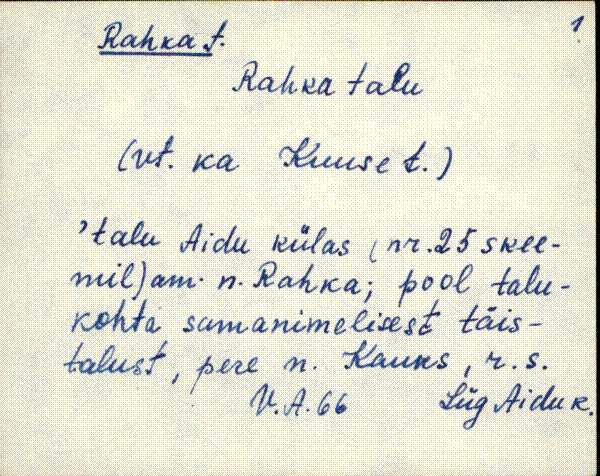 Rahka t.
1
Rahka talu
(vt. ka Kuuse t.)
'talu Aidu külas (nr. 25 skee-
mil) am. n. Rahka; pool talu-
kohta samanimelisest täis-
talust, pere n. Kauks, r. s.
V. A. 66 Lüg Aidu k.